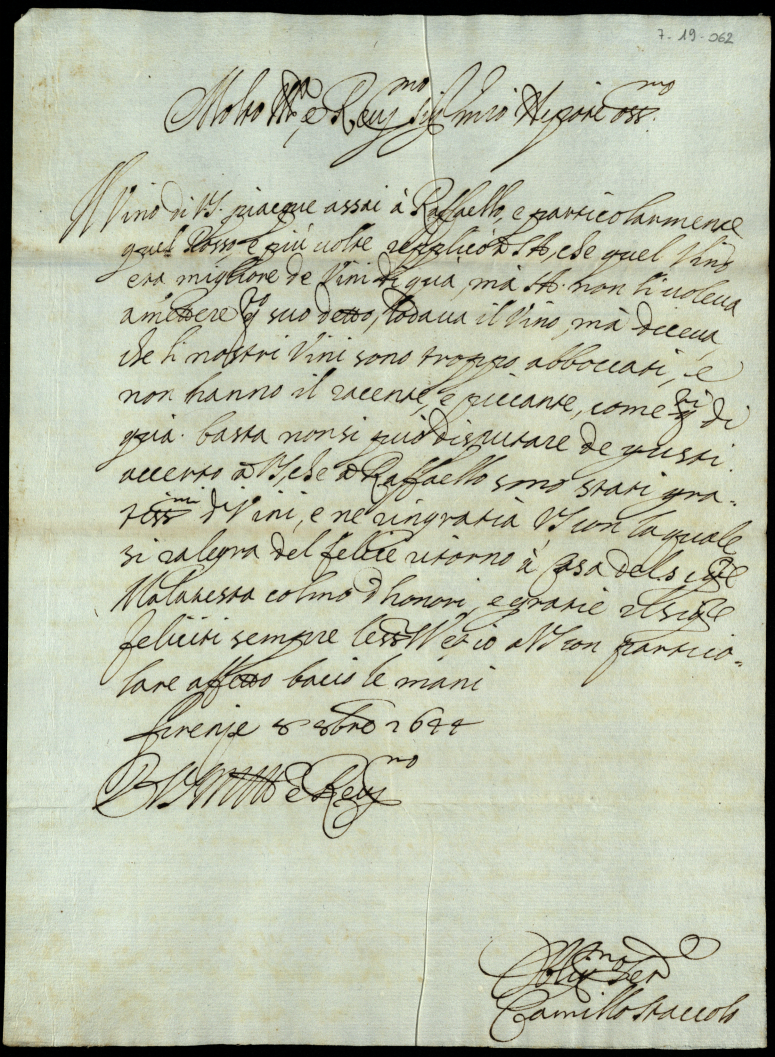 7-19-062
Molto Ill.re e Rev.mo Sig.r mio Sig.re oss.mo
Il Vino di V.S. piacque assai à Raffaello, e particolarmente
quel Rosso, e più volte replicò à SA. che quel Vino
era migliore de Vini di qua, mà SA. non li voleva
amettere suo detto, lodava il Vino, mà diceva
che li nostri Vini sono troppo abboccati, e
non hanno il racente, e piccante, come di
quà. basta non si può disputare de gusti.
accerto à VS. che à Raffaello sono stati gra-
tiss.mi di Vini, e ne ringratia VS con la quale
si ralegra del felice ritorno à Casa del
Malatesta colmo d'honori, e gratie
feliciti sempre et io à VS con partico-
lare affetto bacio le mani
firenze 8 8bre 1644
D VS molto Ill.re e Rev.mo
Ser.
Camillo Staccoli